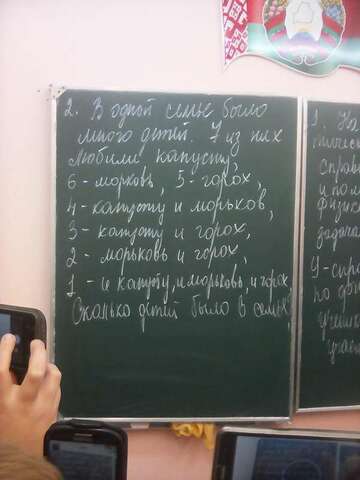 2. В одной семье было
много детей. 7 из них
любили капусту,
6 - морковь, 5 - горох,
4 - капусту и морьков,
3 - капусту и горох,
2 - морьковь и горох,
1 - и капусту, и морьковь, и горох.
Сколько детей было в семье?
1. На
справ
и пом
физик
задача
У - спр
по фи